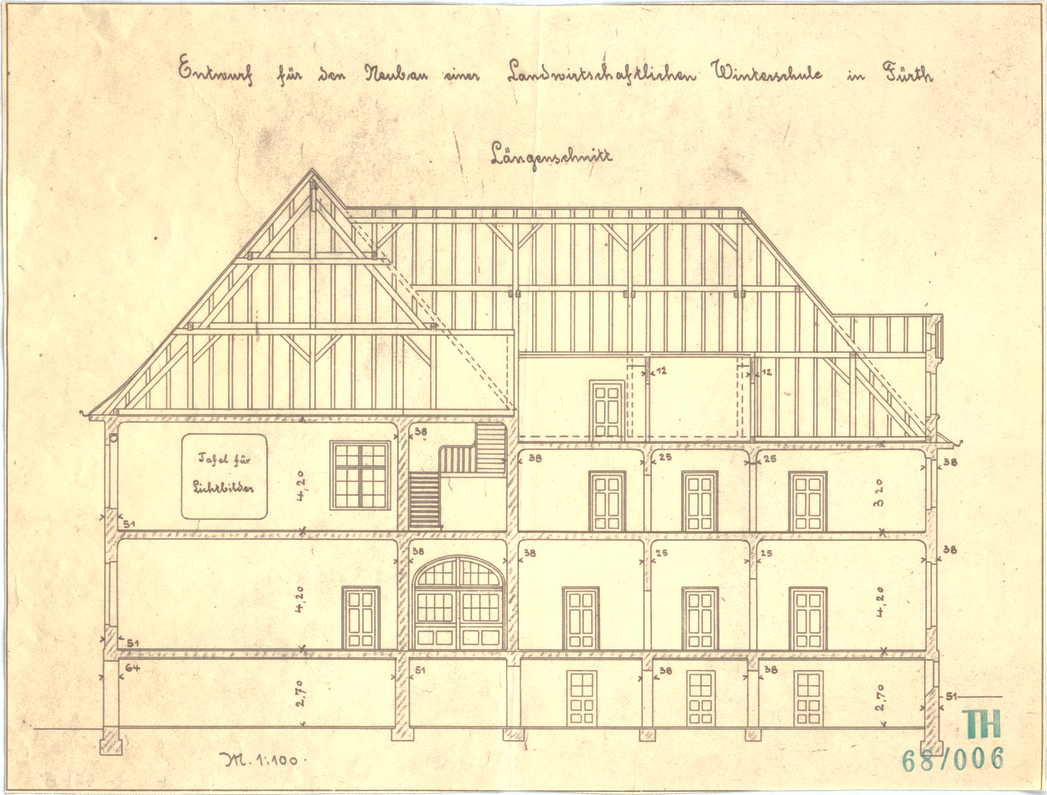 Entwurf für den Neubau einer Landwirtschaftlichen Winterschule in Fürth
Längenschnitt
12
12
38
Tafel für
Lichtbilder
4,20
38
25
25
38
3 20
51
38
38
25
25
38
4,20
4,20
51
64
51
38
38
2,70
2,70
51
M. 1:100.
TH
68/006